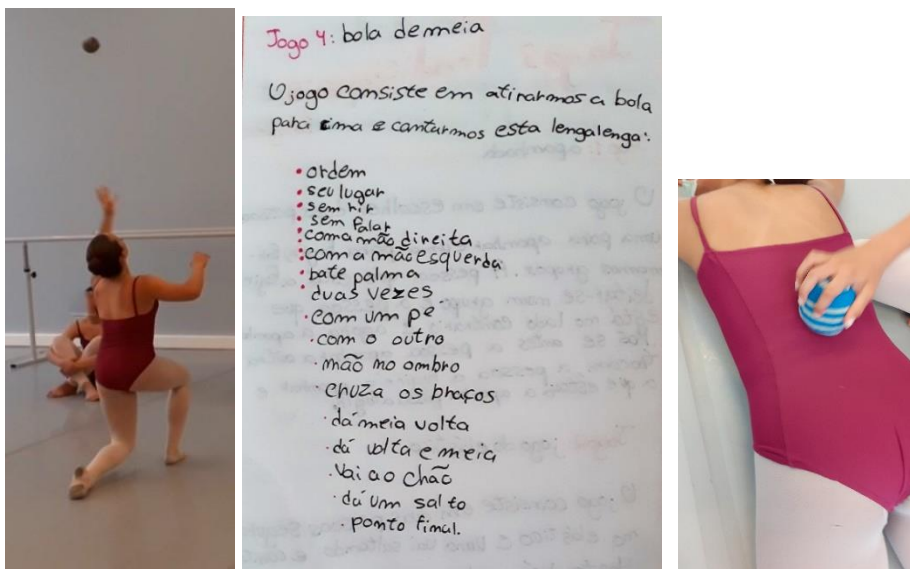 Jogo 4: bola de meia
O jogo consiste em atirarmos a bola
para cima e cantarmos esta lengalenga:
• ordem
• seu lugar
• sem rir
• sem falar
• com a mão direita
• com a mão esquerda
• bate palma
• duas vezes
• com um pé
• com o outro
• mão no ombro
• cruza os braços
• dá meia volta
• dá volta e meia
• vai ao chão
• dá um salto
• ponto final.